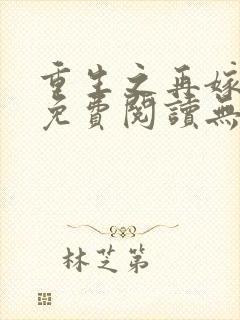 重生之再嫁
免費閱讀無
林芝第